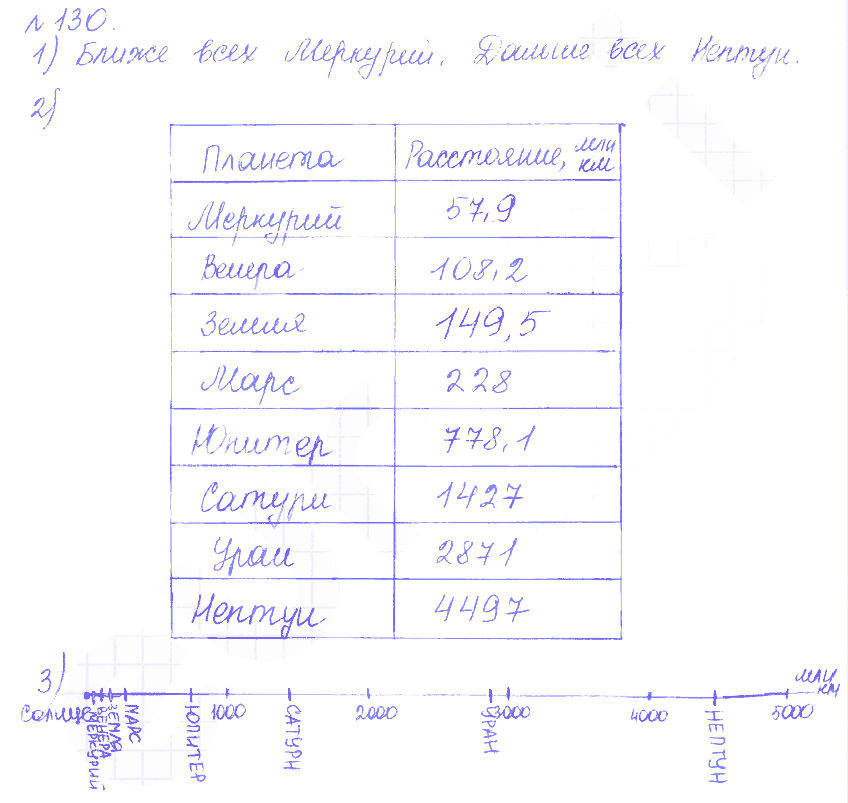 №130.
1) Ближе всех Меркурий. Дальше всех Нептун.
2)
Планета Расстояние, млн км
Меркурий 57,9
Венера 108,2
Земля 149,5
Марс 228
Юпитер 778,1
Сатурн 1427
Уран 2871
Нептун 4497
3)
млн км
Солнце 1000 2000 3000 4000 5000
МЕРКУРИЙ
ВЕНЕРА
ЗЕМЛЯ
МАРС
ЮПИТЕР
САТУРН
УРАН
НЕПТУН